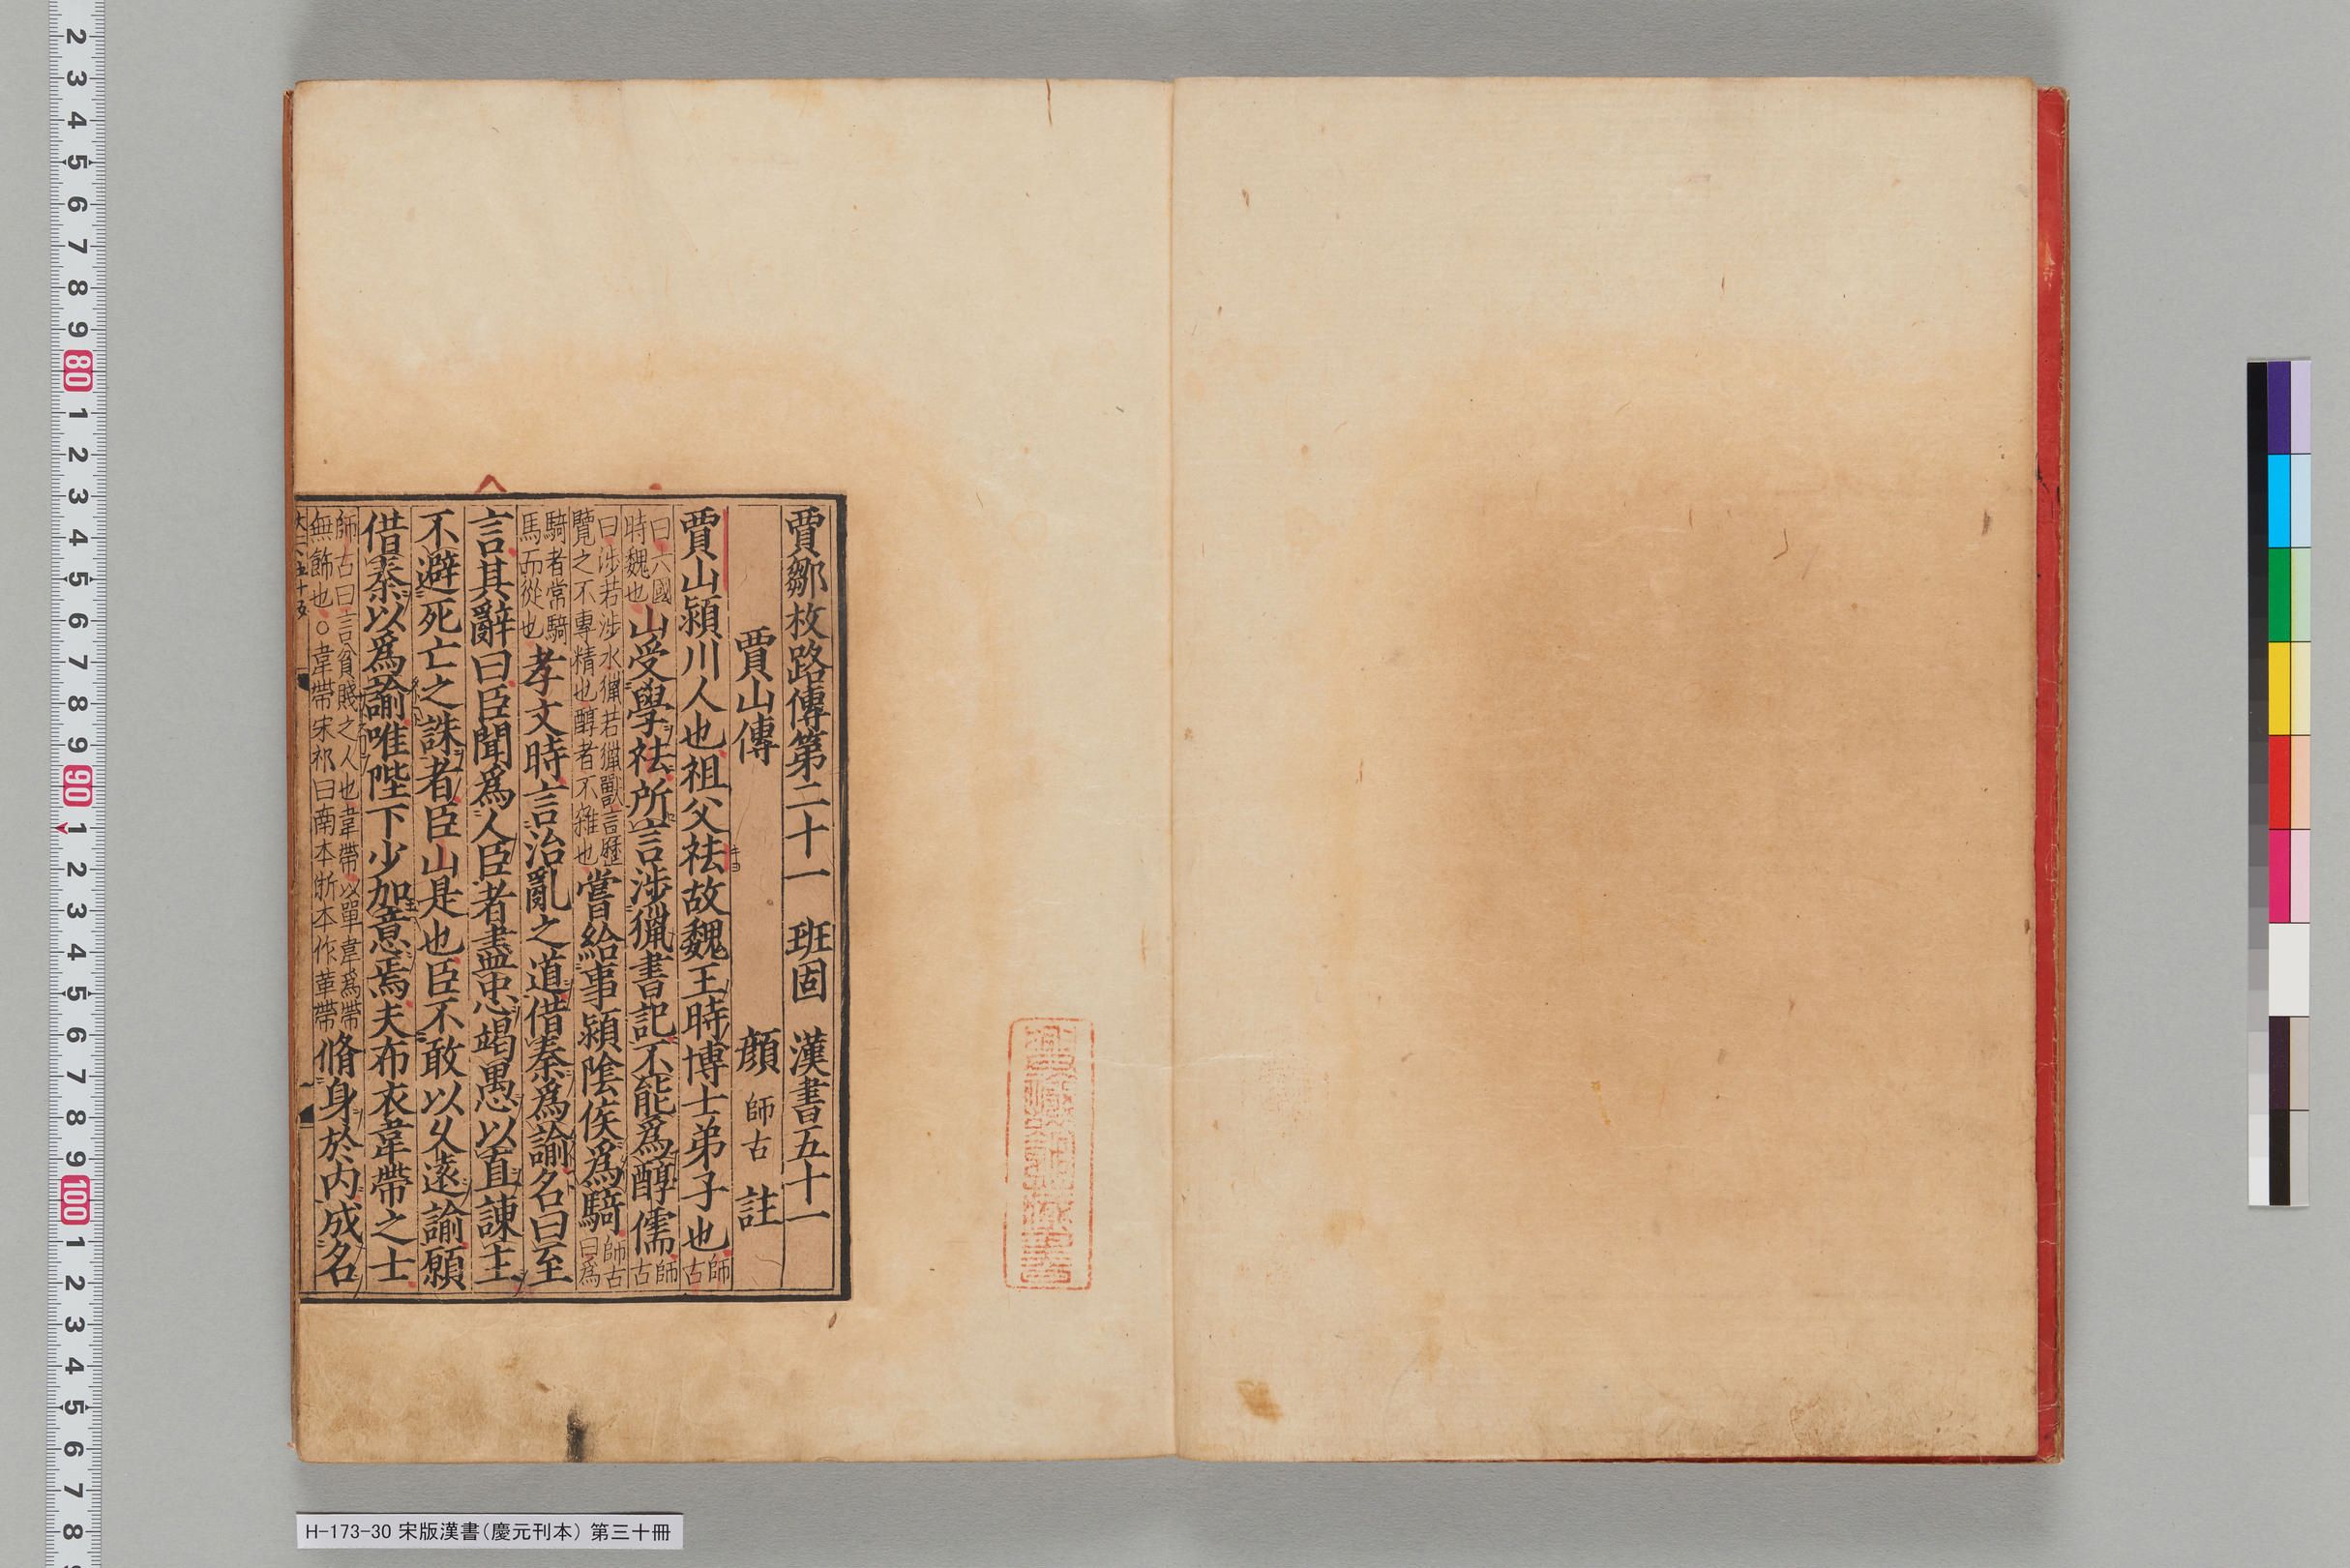 賈鄒枚路傳第二十一 班固 漢書五十一
賈山傳 顔 師古 註
賈山潁川人也祖父祛故魏王時博士弟子也師古
曰六國時魏也山受學祛所言涉獵書記不能爲醇儒師古
曰涉若涉水獵若獵獸言歷覽之不專精也醇者不雜也嘗給事潁陰侯爲騎師古曰爲
騎者常騎馬而從也孝文時言治亂之道借秦爲諭名曰至
言其辭曰臣聞爲人臣者盡忠竭愚以直諫主
不避死亡之誅者臣山是也臣不敢以久遠諭願
借秦以爲諭唯陛下少加意焉夫布衣韋帶之士
師古曰言貧賤之人也韋帶以單韋爲帶無飾也○韋帶宋祁曰南本浙本作革帶脩身於内成名
H-173-30 宋版漢書(慶元刊本) 第三十冊
2 3 4 5 6 7 8 9 80 1 2 3 4 5 6 7 8 9 90 1 2 3 4 5 6 7 8 9 100 1 2 3 4 5 6 7 8